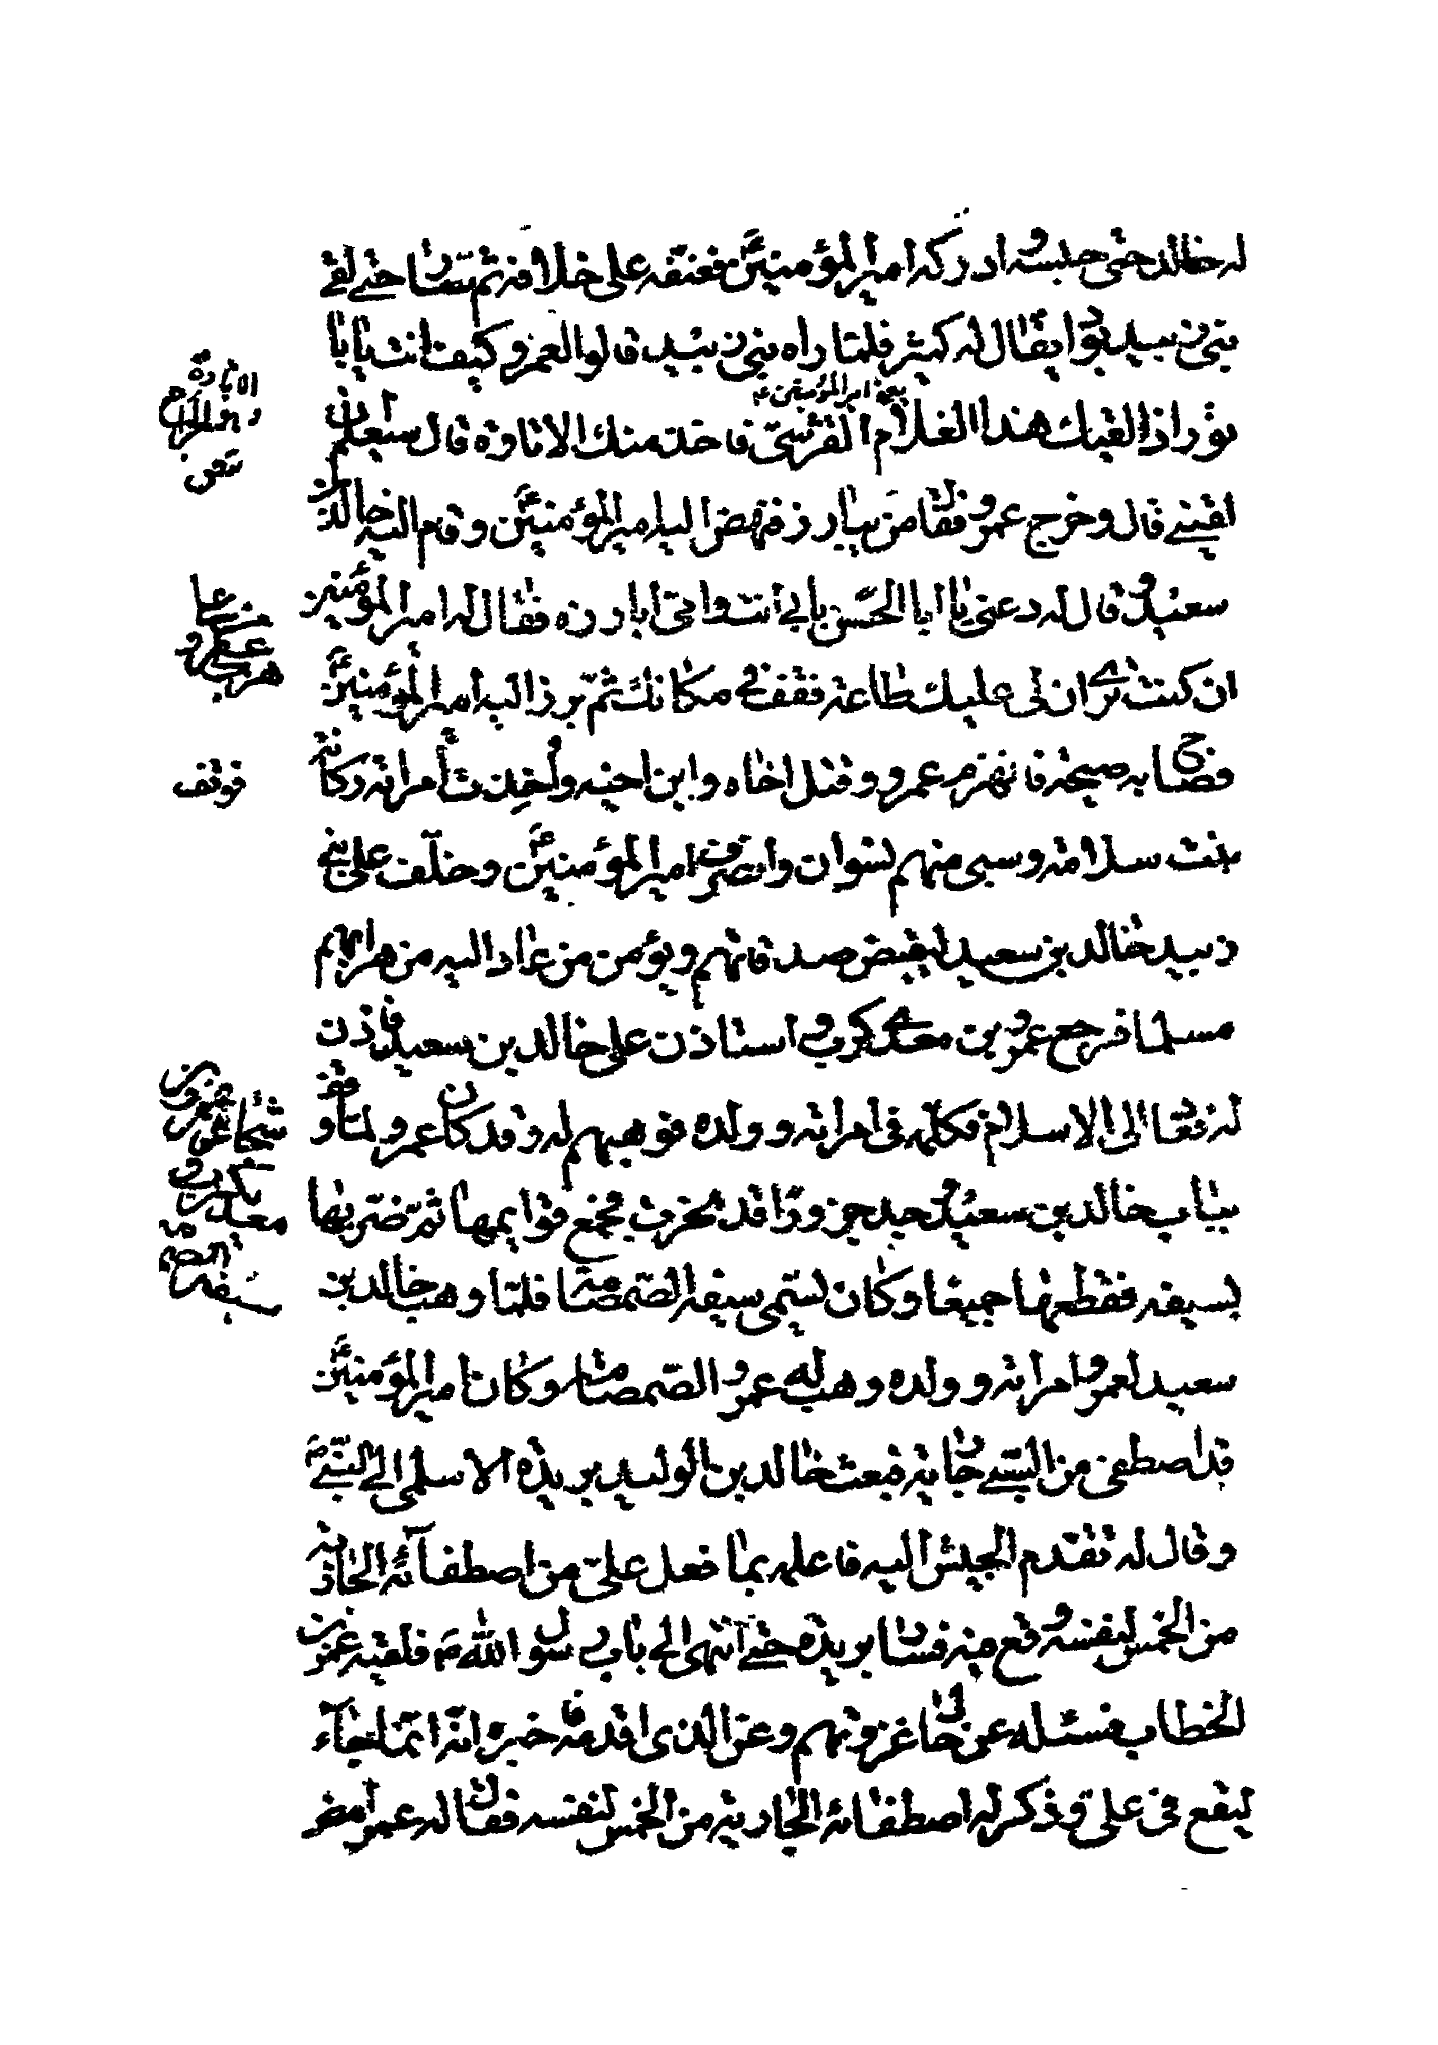 له خالد حتى حبسه وادركه امير المؤمنين ع فعنفه على خلافه ثم سار حتى لقى
بنى زبيد بواد يقال له كثير فلما راه بنى زبيد قالوا لعمرو كيف انت يا با
ثور اذا لقيك هذا الغلام القرشى فاخذ منك الاتاوة قال سيعلم ان
يعنى امير المؤمنين ع
لقينى قال وخرج عمرو فقال من يبارز فنهض اليه امير المؤمنين ع وقام اليه خالد بن
سعيد وقال له دعنى يا ابا الحسن بابى انت وامى ابارزه فقال له امير المؤمنين
ان كنت ترى ان لى عليك طاعة فقف فى مكانك ثم برز اليه امير المؤمنين ع
فصاح به صيحة فانهزم عمرو وقتل اخاه وابن اخيه واخذت امراته ركانة
بنت سلامة وسبى منهم نسوان وانصرف امير المؤمنين ع وخلف على بنى
زبيد خالد بن سعيد ليقبض صدقاتهم ويؤمن من عاد اليه من هرابهم
مسلما فرجع عمرو بن معدى كرب واستاذن على خالد بن سعيد فاذن
له فعاد الى الاسلام فكلمه فى امراته وولده فوهبهم له وقد كان عمرو لما وقف
بباب خالد بن سعيد وجد جزورا قد نحرت فجمع قوايمها ثم ضربها
بسيفه فقطعها جميعا وكان يسمى سيفه الصمصامة فلما وهب خالد بن
سعيد لعمرو امراته وولده وهب له عمرو الصمصامة وكان امير المؤمنين ع
قد اصطفى من السبى جارية فبعث خالد بن الوليد بريدة الاسلمى الى النبى ص
وقال له تقدم الجيش اليه فاعلمه بما فعل على من اصطفائه الجارية
من الخمس لنفسه وقع فيه فسار بريدة حتى انتهى الى باب رسول الله ص فلقيه عمر بن
الخطاب فسئله عن حال غزوتهم وعن الذى اقدمه فاخبره انه انما جاء
ليقع فى على وذكر له اصطفائه الجارية من الخمس لنفسه فقال له عمر امض
الاتاوة
الخراج
ص
على ع
عمرو
فوقف
شجاعة عمرو بن
معديكرب و
سيفه الصمصامة